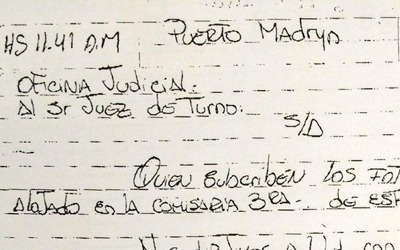 HS 11.41 A.M Puerto Madryn
Oficina Judicial.
Al Sr Juez de Turno.
S/D
Quien Subscriben los
Alojado en la Comisaria 3ra- de